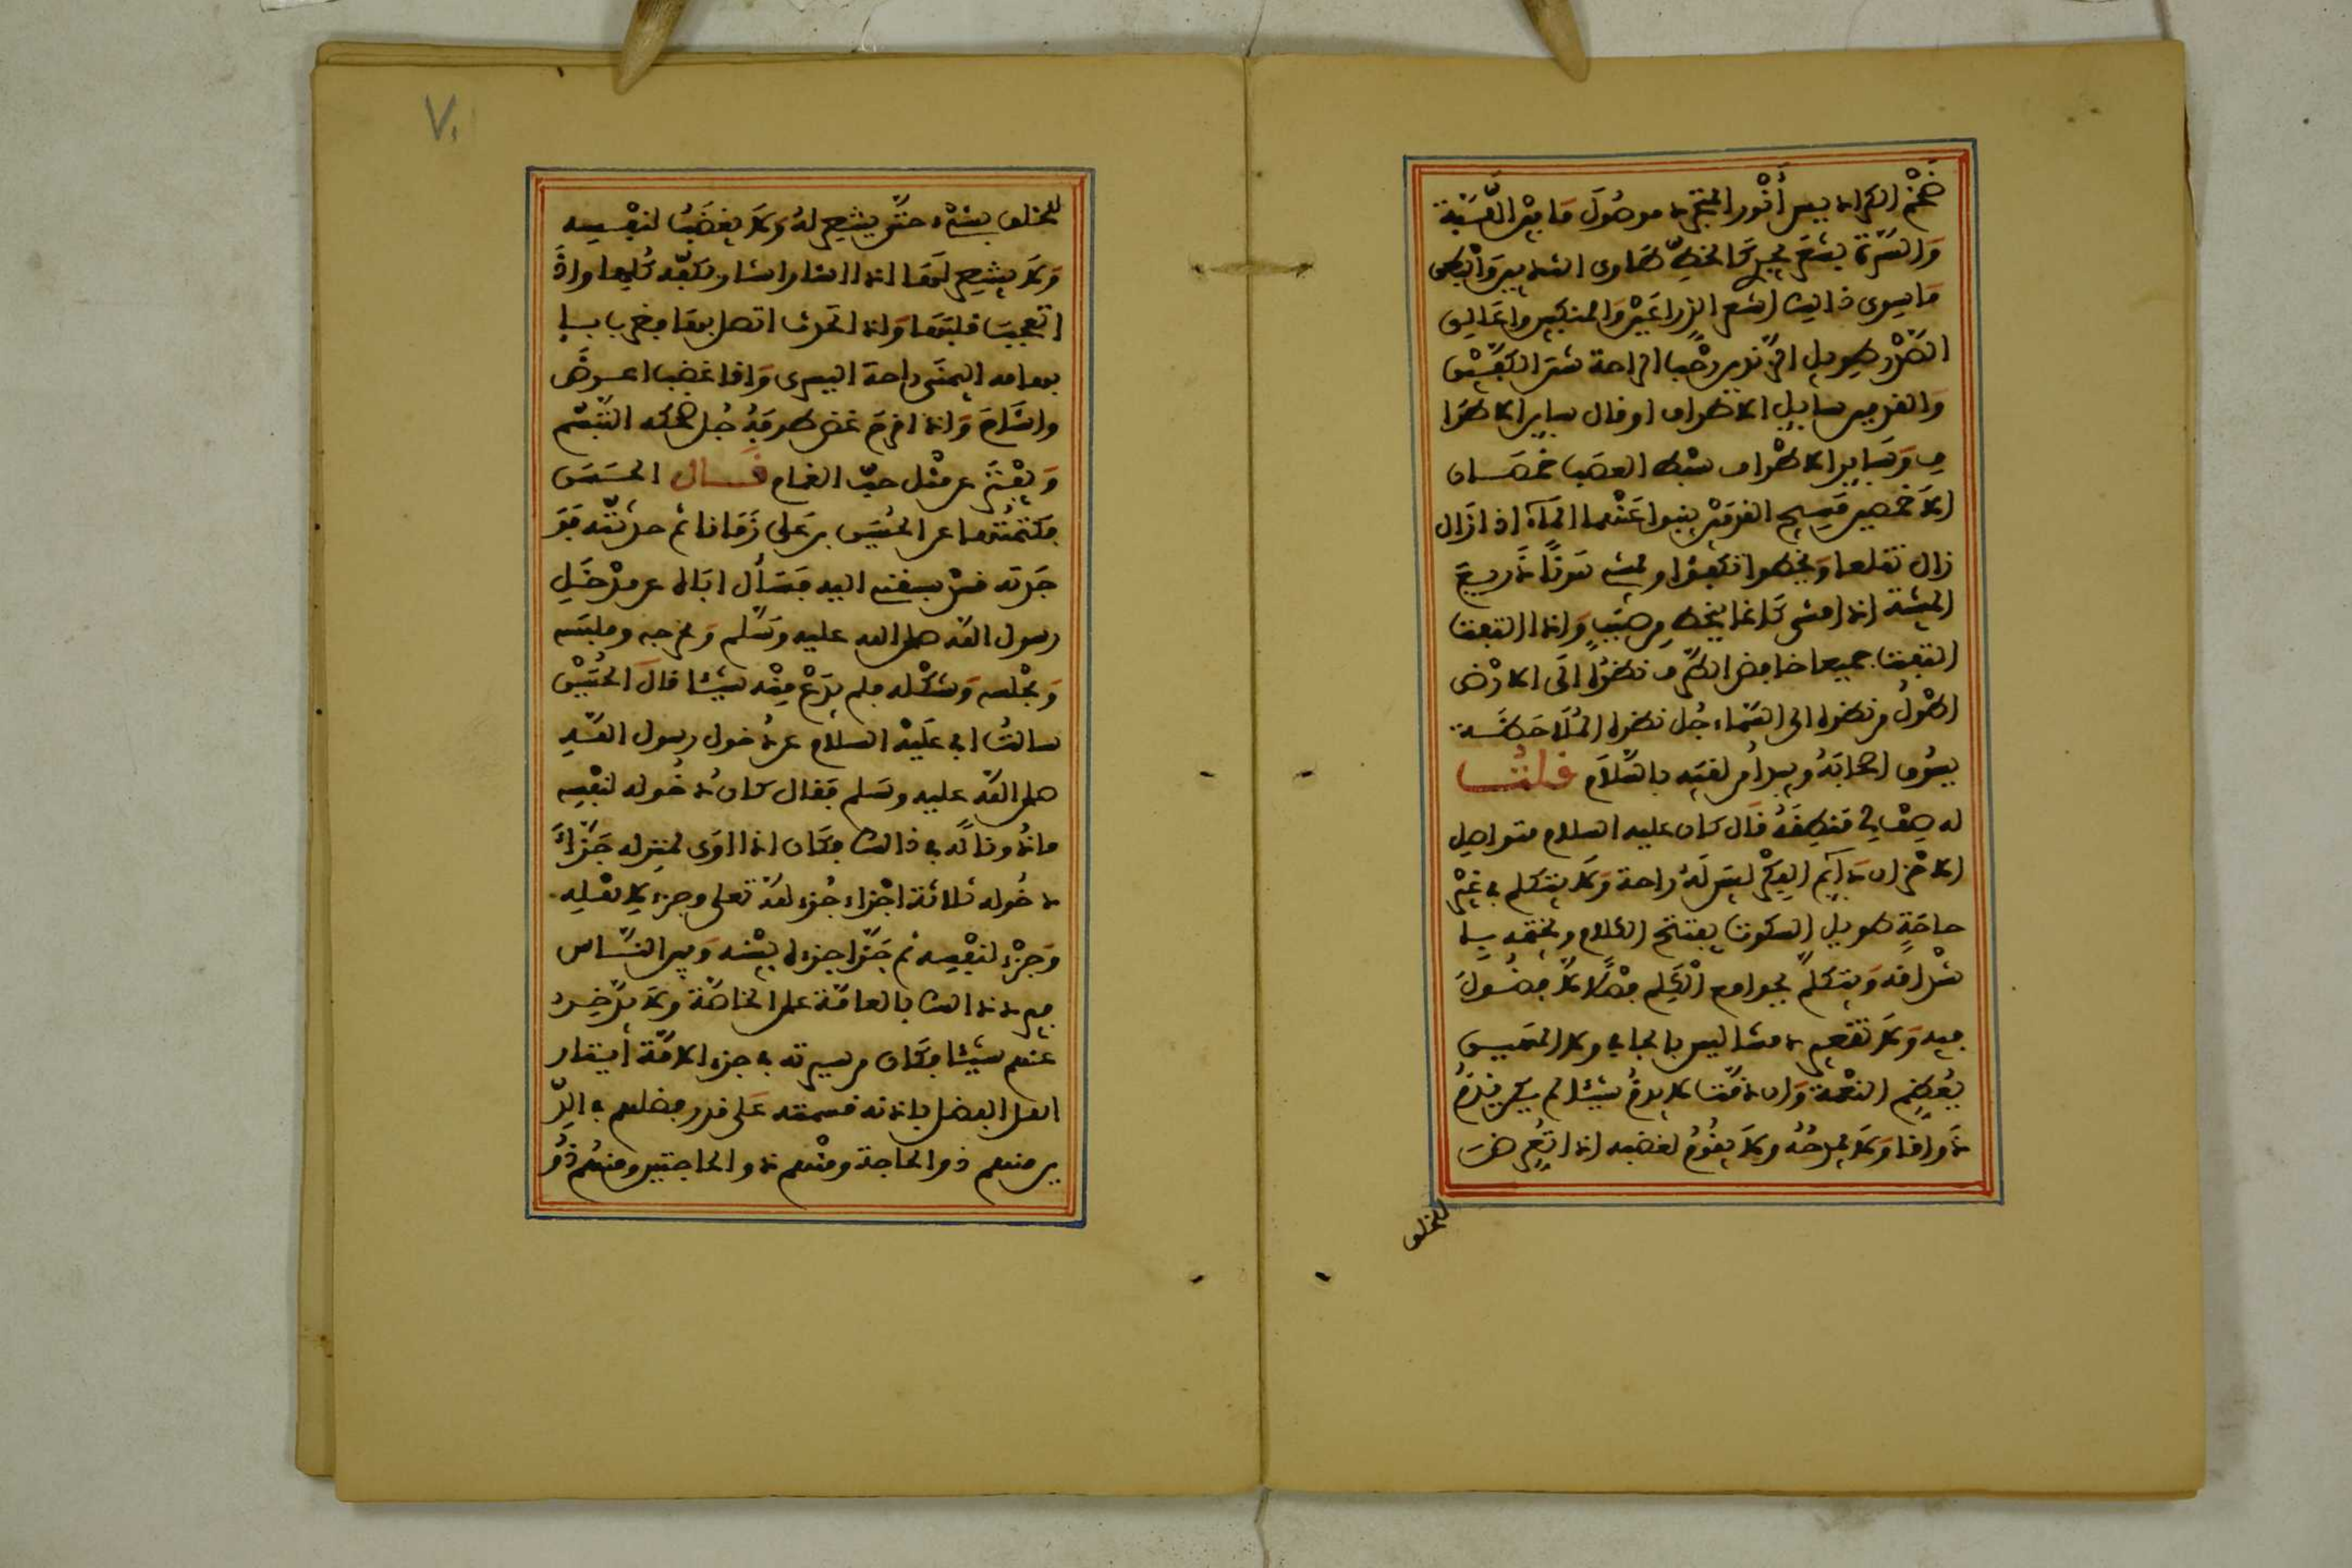 ضخم الكراديس أنور المتجرد موصول ما بين اللبة
والسرة بشعر يجري كالخط عاري الثديين والبطن
ما سوى ذلك أشعر الذراعين والمنكبين وأعالي
الصدر طويل الزندين رحب الراحة شثن الكفين
والقدمين سائل الاطراف او قال سائر الاطرا
ف وسائر الاطراف سبط العصب خمصان
الاخمصين مسيح القدمين ينبوا عنهما الماء اذا زال
زال تقلعا ويخطوا تكفؤا ويمشي هونا ذريع
المشية اذا مشى كانما ينحط من صبب واذا التفت
التفت جميعا خافض الطرف نظره الى الارض
اطول من نظره الى السماء جل نظره الملاحظة
يسوق اصحابه ويبدأ من لقيه بالسلام قلت
له صف لي منطقه قال كان عليه السلام متواصل
الاحزان دائم الفكر ليس له راحة ولا يتكلم في غير
حاجة طويل السكوت يفتتح الكلام ويختمه با
شداقه ويتكلم بجوامع الكلم فصلا لا فضول
فيه ولا تقصير دمثا ليس بالجافي ولا المهين
يعظم النعمة وان دقت لا يذم شيئا لم يكن يذم
ذواقا ولا يمدحه ولا يقوم لغضبه اذا تعرض
للحق
للحق بشيء حتى ينتصر له ولا يغضب لنفسه
ولا ينتصر لها اذا اشار اشار بكفه كلها واذا
تعجب قلبها واذا تحدث اتصل بها فضرب با
بهامه اليمنى راحة اليسرى واذا غضب اعرض
واشاح واذا فرح غض طرفه جل ضحكه التبسم
ويفتر عن مثل حب الغمام قال الحسن
فكتمتها عن الحسين بن علي زمانا ثم حدثته فو
جدته قد سبقني اليه فسأل اباه عن مدخل
رسول الله صلى الله عليه وسلم ومخرجه وملبسه
ومجلسه وشكله فلم يدع منه شيئا قال الحسين
سالت ابي عليه السلام عن دخول رسول الله
صلى الله عليه وسلم فقال كان دخوله لنفسه
ماذونا له في ذلك فكان اذا اوى لمنزله جزأ
دخوله ثلاثة اجزاء جزء لله تعلى وجزء لاهله
وجزء لنفسه ثم جزا جزءه بينه وبين الناس
فيرد ذالك بالعامة على الخاصة ولا يدخر
عنهم شيئا فكان من سيرته في جزء الامة ايثار
اهل الفضل باذنه قسمته على قدر فضلهم في الد
ين منهم ذو الحاجة ومنهم ذو الحاجتين ومنهم ذو